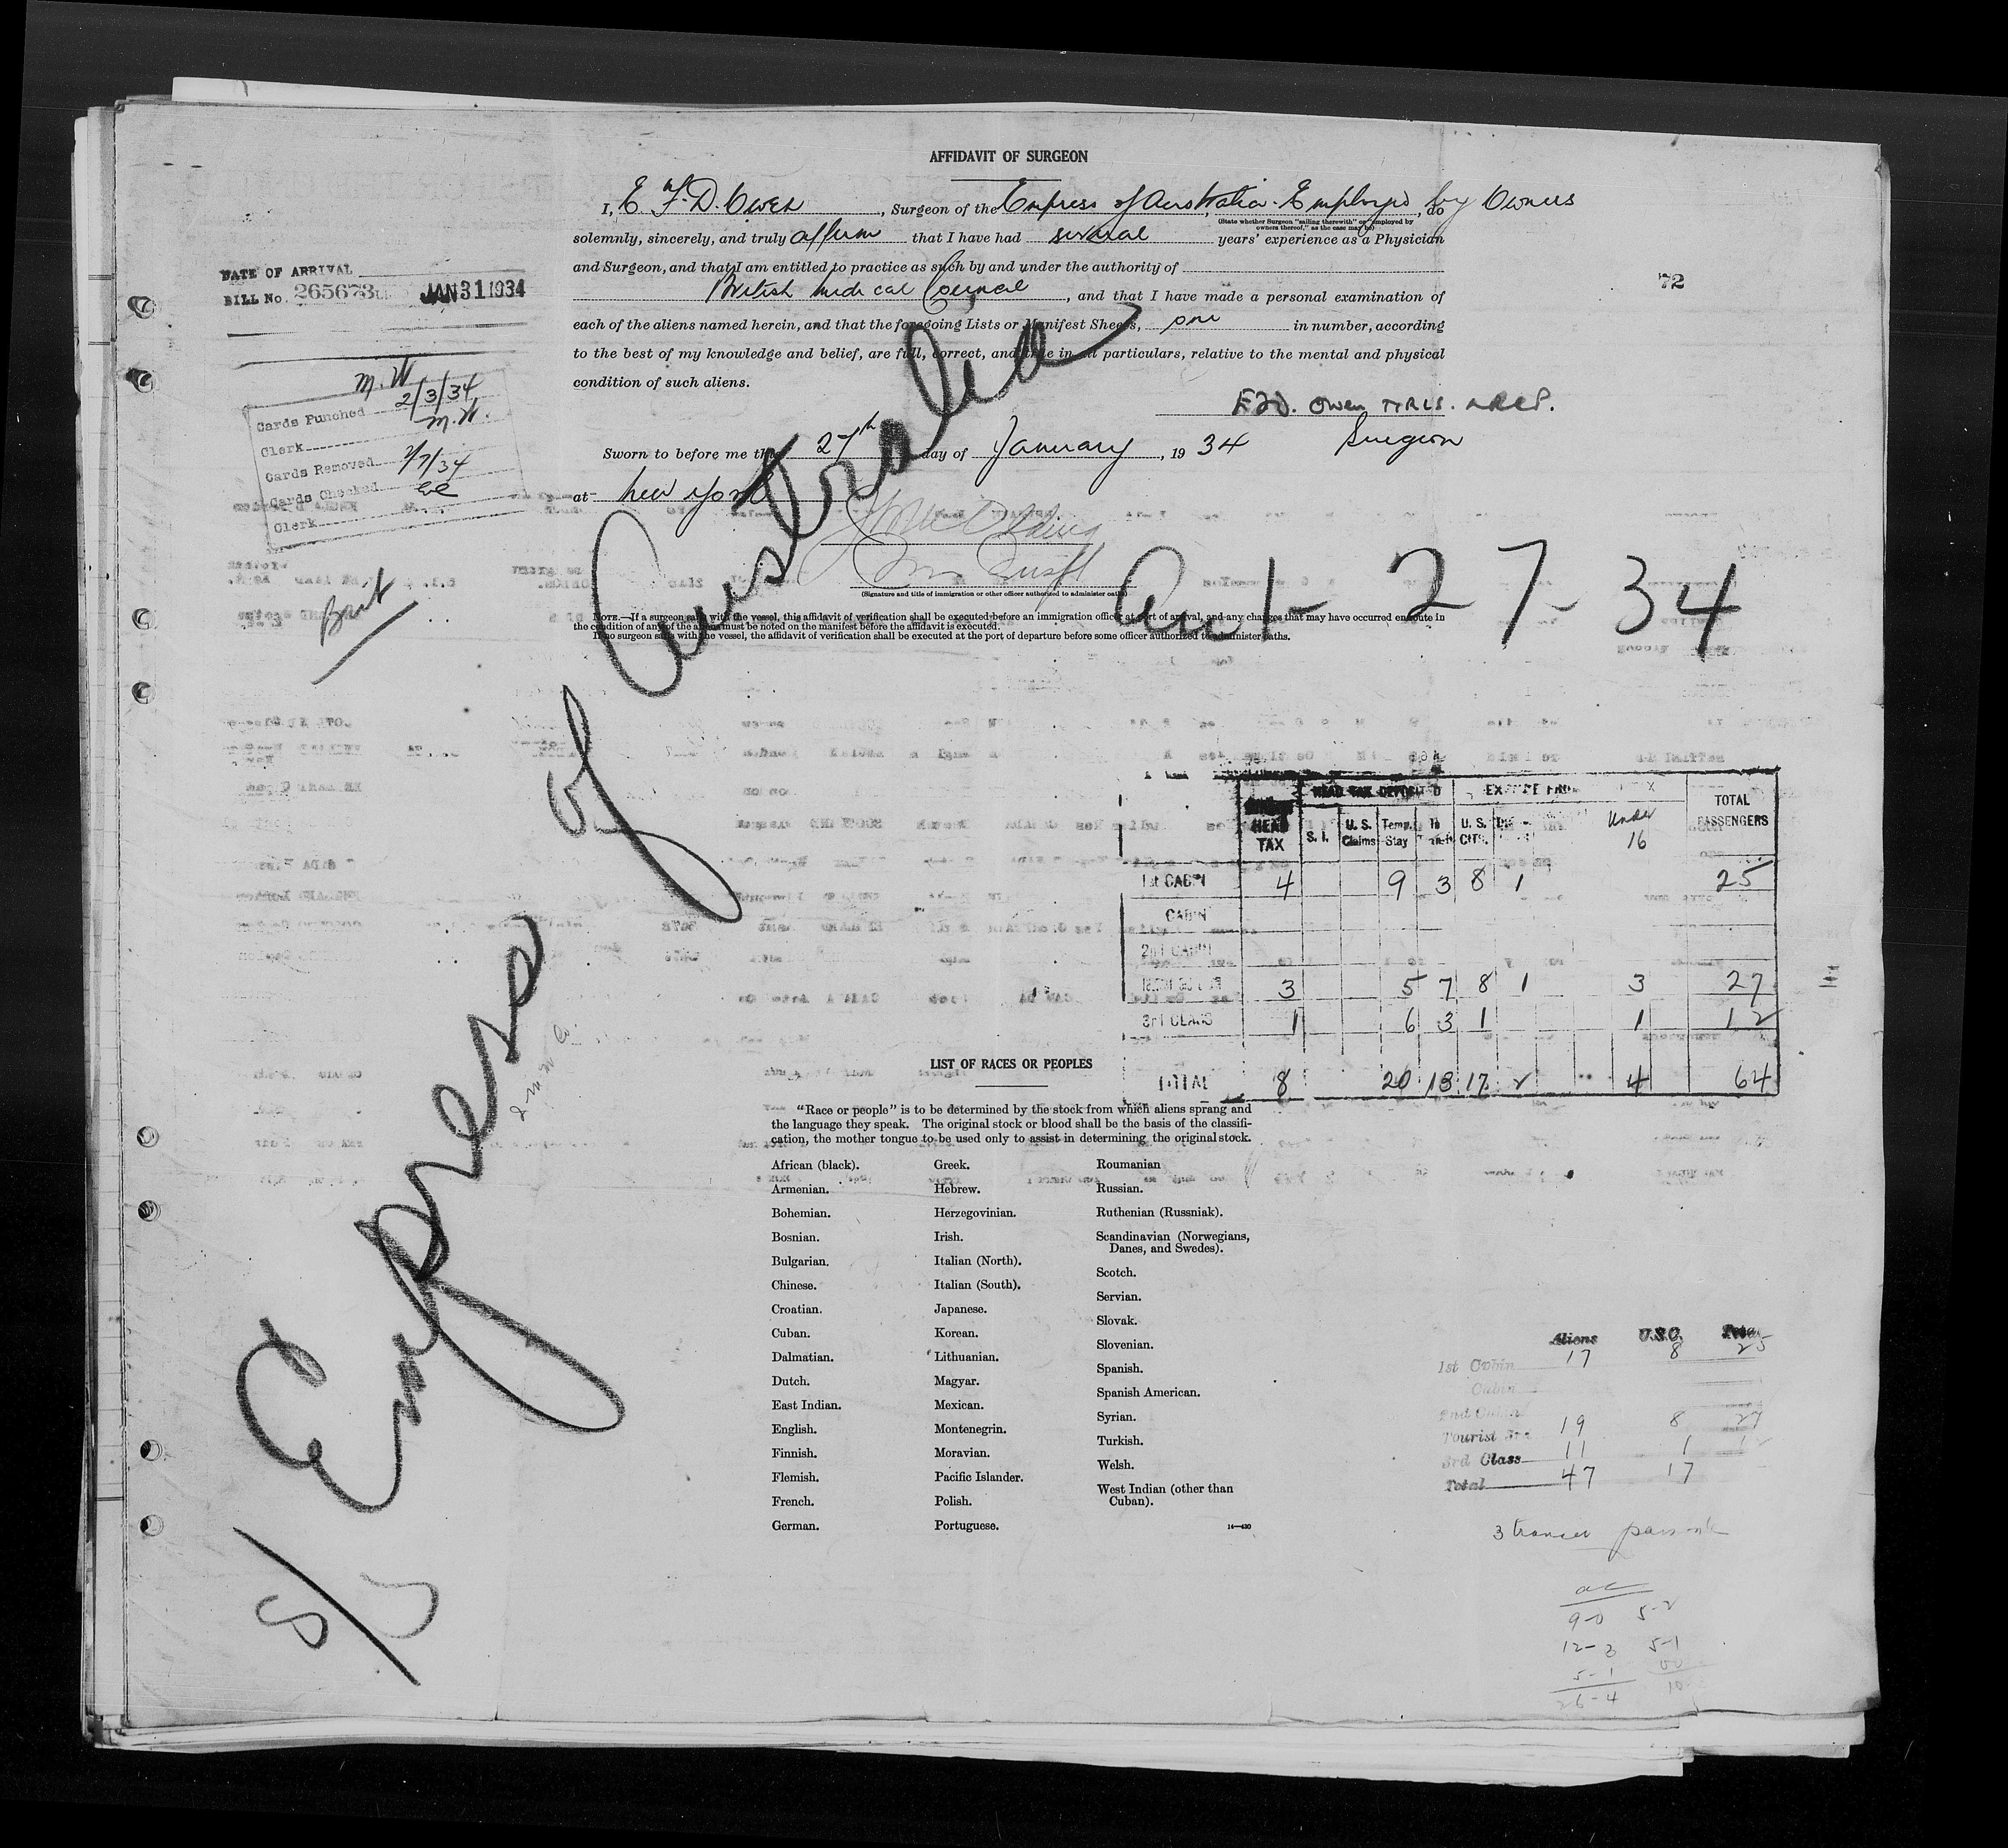 AFFIDAVIT OF SURGEON
I, E. F. D. Owen, Surgeon of the Empress of Australia. Employed by Owners, do
(State whether Surgeon "sailing therewith" or "employed by owners thereof," as the case may be)
solemnly, sincerely, and truly affirm that I have had several years' experience as a Physician
and Surgeon, and that I am entitled to practice as such by and under the authority of
British Medical Council, and that I have made a personal examination of
each of the aliens named herein, and that the foregoing Lists or Manifest Sheets, one in number, according
to the best of my knowledge and belief, are full, correct, and true in all particulars, relative to the mental and physical
condition of such aliens.
Owen
Surgeon
Sworn to before me this 27th day of January, 1934
at New York
(Signature and title of immigration or other officer authorized to administer oaths)
NOTE.—If a surgeon sails with the vessel, this affidavit of verification shall be executed before an immigration officer at port of arrival, and any changes that may have occurred en route in
the condition of any of the aliens must be noted on the manifest before the affidavit is executed.
If no surgeon sails with the vessel, the affidavit of verification shall be executed at the port of departure before some officer authorized to administer oaths.
DATE OF ARRIVAL
BILL No. 265673 JAN 31 1934
72
M. W.
Cards Punched 2/3/34
Clerk M. W.
Cards Removed 2/7/34
Cards Checked
Clerk
Brit
S/S Empress of Australia
1-27-34
HEAD TAX
HEAD TAX DEPOSITED
EXEMPT FROM
TOTAL PASSENGERS
S. I. U. S. Claims Temp. Stay U. S. CITS. Under 16
1st CABIN 4 9 3 8 1 25
CABIN
2nd CABIN
3 5 7 8 1 3 27
3rd CLASS 1 6 3 1 1 12
TOTAL 8 20 13 17 2 4 64
LIST OF RACES OR PEOPLES
"Race or people" is to be determined by the stock from which aliens sprang and
the language they speak. The original stock or blood shall be the basis of the classifi-
cation, the mother tongue to be used only to assist in determining the original stock.
African (black).
Armenian.
Bohemian.
Bosnian.
Bulgarian.
Chinese.
Croatian.
Cuban.
Dalmatian.
Dutch.
East Indian.
English.
Finnish.
Flemish.
French.
German.
Greek.
Hebrew.
Herzegovinian.
Irish.
Italian (North).
Italian (South).
Japanese.
Korean.
Lithuanian.
Magyar.
Mexican.
Montenegrin.
Moravian.
Pacific Islander.
Polish.
Portuguese.
Roumanian
Russian.
Ruthenian (Russniak).
Scandinavian (Norwegians,
Danes, and Swedes).
Scotch.
Servian.
Slovak.
Slovenian.
Spanish.
Spanish American.
Syrian.
Turkish.
Welsh.
West Indian (other than
Cuban).
Aliens U.S.C. Total
1st Cabin 17 8 25
Cabin
2nd Cabin
Tourist 3rd 19 8 27
3rd Class 11 1 12
Total 47 17
3
9-0 5-2
12-3 5-1
5-1
26-4 10